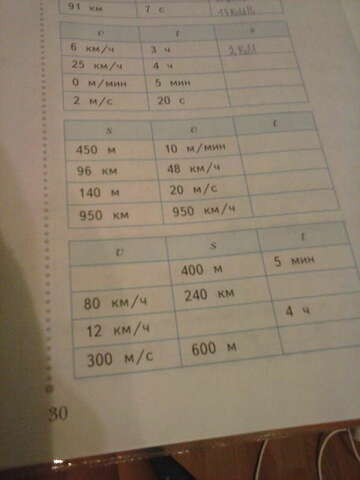 91 км 7 с
v t s
6 км/ч 3 ч
25 км/ч 4 ч
0 м/мин 5 мин
2 м/с 20 с
s v t
450 м 10 м/мин
96 км 48 км/ч
140 м 20 м/с
950 км 950 км/ч
v s t
400 м 5 мин
80 км/ч 240 км
12 км/ч 4 ч
300 м/с 600 м
30